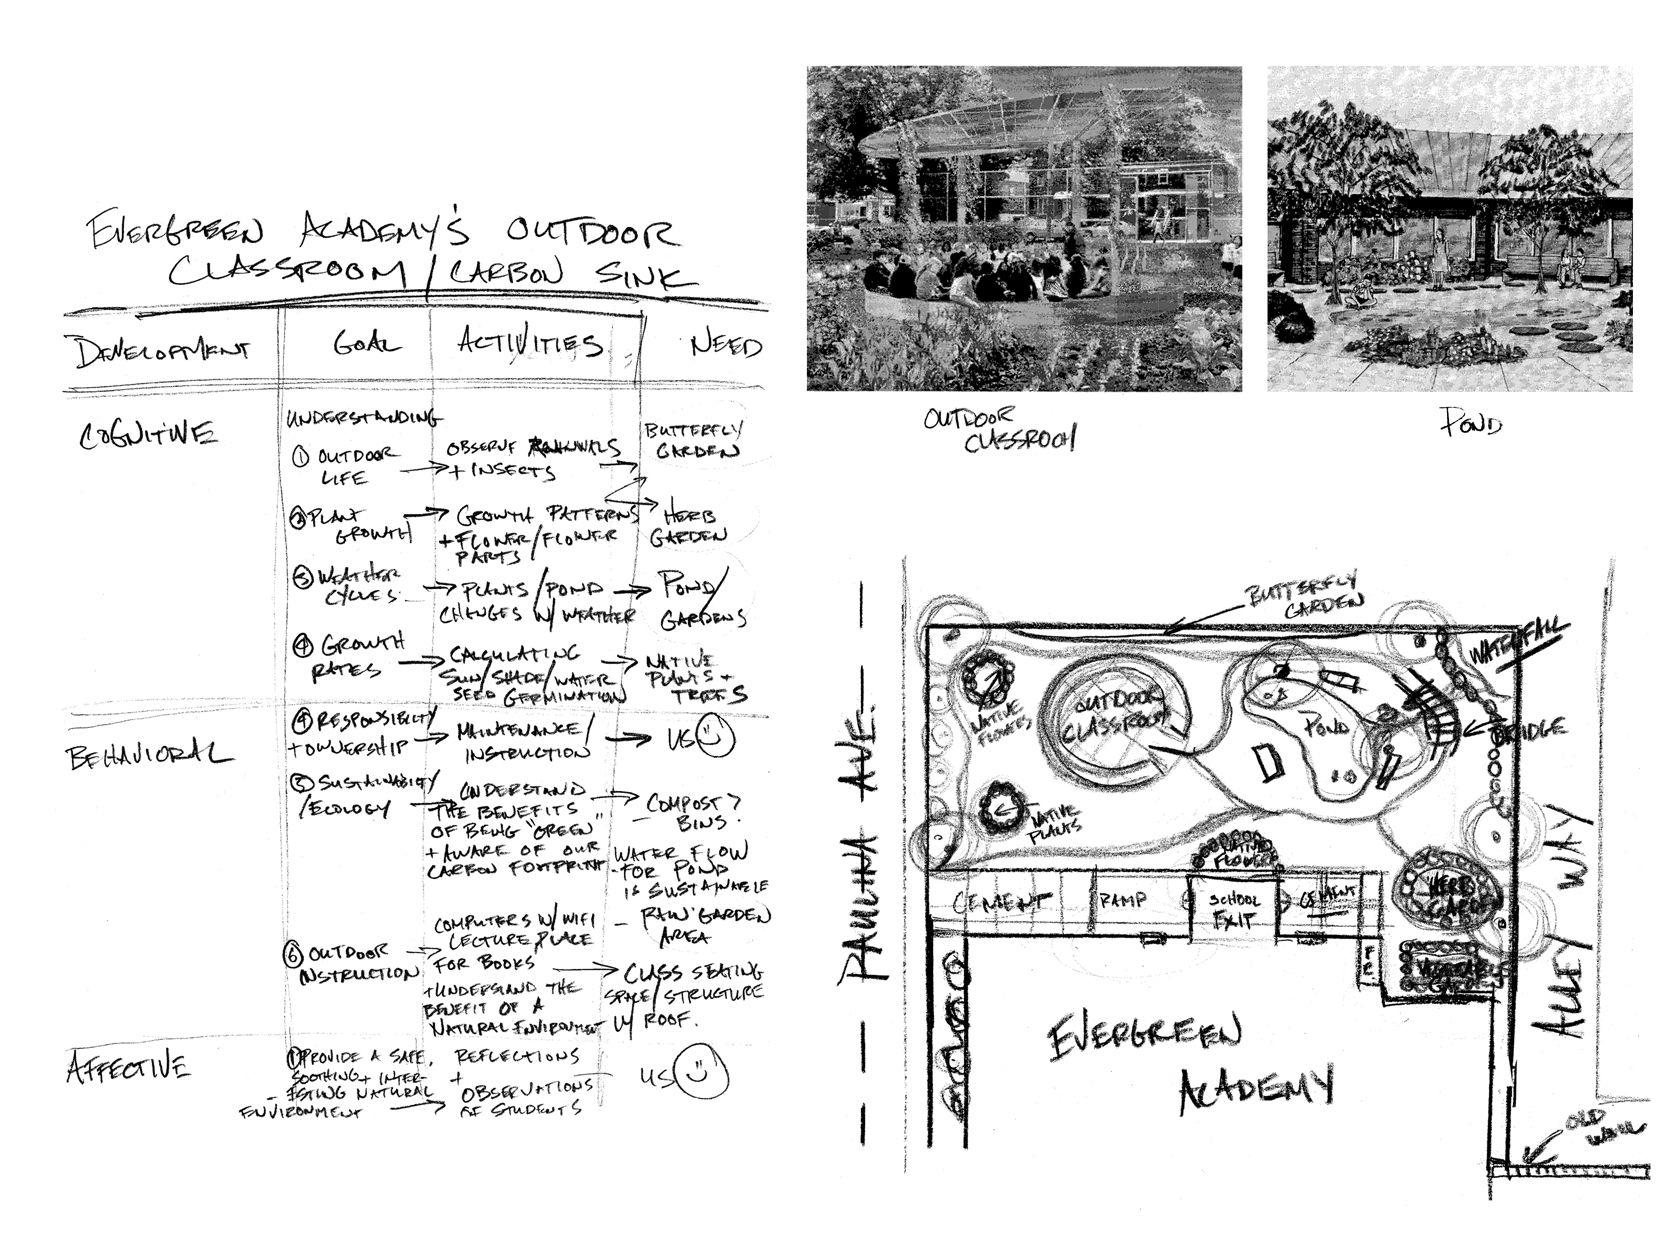 EVERGREEN ACADEMY'S OUTDOOR
CLASSROOM/CARBON SINK
DEVELOPMENT
GOAL
ACTIVITIES
NEED
COGNITIVE
UNDERSTANDING
① OUTDOOR
LIFE
OBSERVE ANIMALS
+ INSECTS
BUTTERFLY
GARDEN
② PLANT
GROWTH
GROWTH PATTERNS
+ FLOWER/FLOWER
PARTS
HERB
GARDEN
③ WEATHER
CYCLES
PLANTS/POND
CHANGES W/ WEATHER
POND/
GARDENS
④ GROWTH
RATES
CALCULATING
SUN/SHADE/WATER
SEED GERMINATION
NATIVE
PLANTS +
TREES
BEHAVIORAL
④ RESPONSIBILITY
+ OWNERSHIP
MAINTENANCE/
INSTRUCTION
US
⑤ SUSTAINABILITY
/ECOLOGY
UNDERSTAND
THE BENEFITS
OF BEING "GREEN"
+ AWARE OF OUR
CARBON FOOTPRINT
COMPOST?
BINS.
WATER FLOW
FOR POND
IS SUSTAINABLE
- RAW GARDEN
AREA
⑥ OUTDOOR
INSTRUCTION
COMPUTERS W/ WIFI
LECTURE, PLACE
FOR BOOKS
+ UNDERSTAND THE
BENEFIT OF A
NATURAL ENVIRONMENT
CLASS SEATING
SPACE/STRUCTURE
W/ ROOF.
AFFECTIVE
① PROVIDE A SAFE,
SOOTHING + INTER-
ESTING NATURAL
ENVIRONMENT
REFLECTIONS
+
OBSERVATIONS
OF STUDENTS
US
OUTDOOR
CLASSROOM
POND
BUTTERFLY
GARDEN
WATERFALL
NATIVE
FLOWERS
OUTDOOR
CLASSROOM
POND
BRIDGE
NATIVE
PLANTS
NATIVE
FLOWERS
PAULINA AVE.
ALLEY WAY
CEMENT
RAMP
SCHOOL
EXIT
CEMENT
HERB
GARDEN
VEGETABLE
GARDEN
EVERGREEN
ACADEMY
OLD
WALL